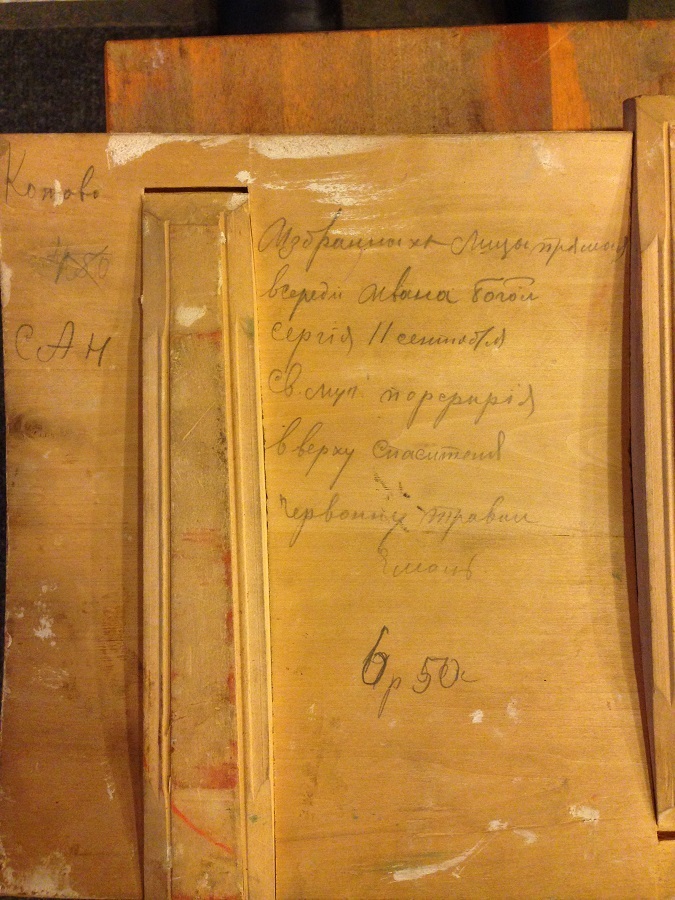 Копово
САН
Избранныхъ Лицы прямыя
в середи Ивана Богол
Сергія 11 сентября
Св. муч. порфирія
в верху спасителя
червонну травам
Эмаль
6р 50к